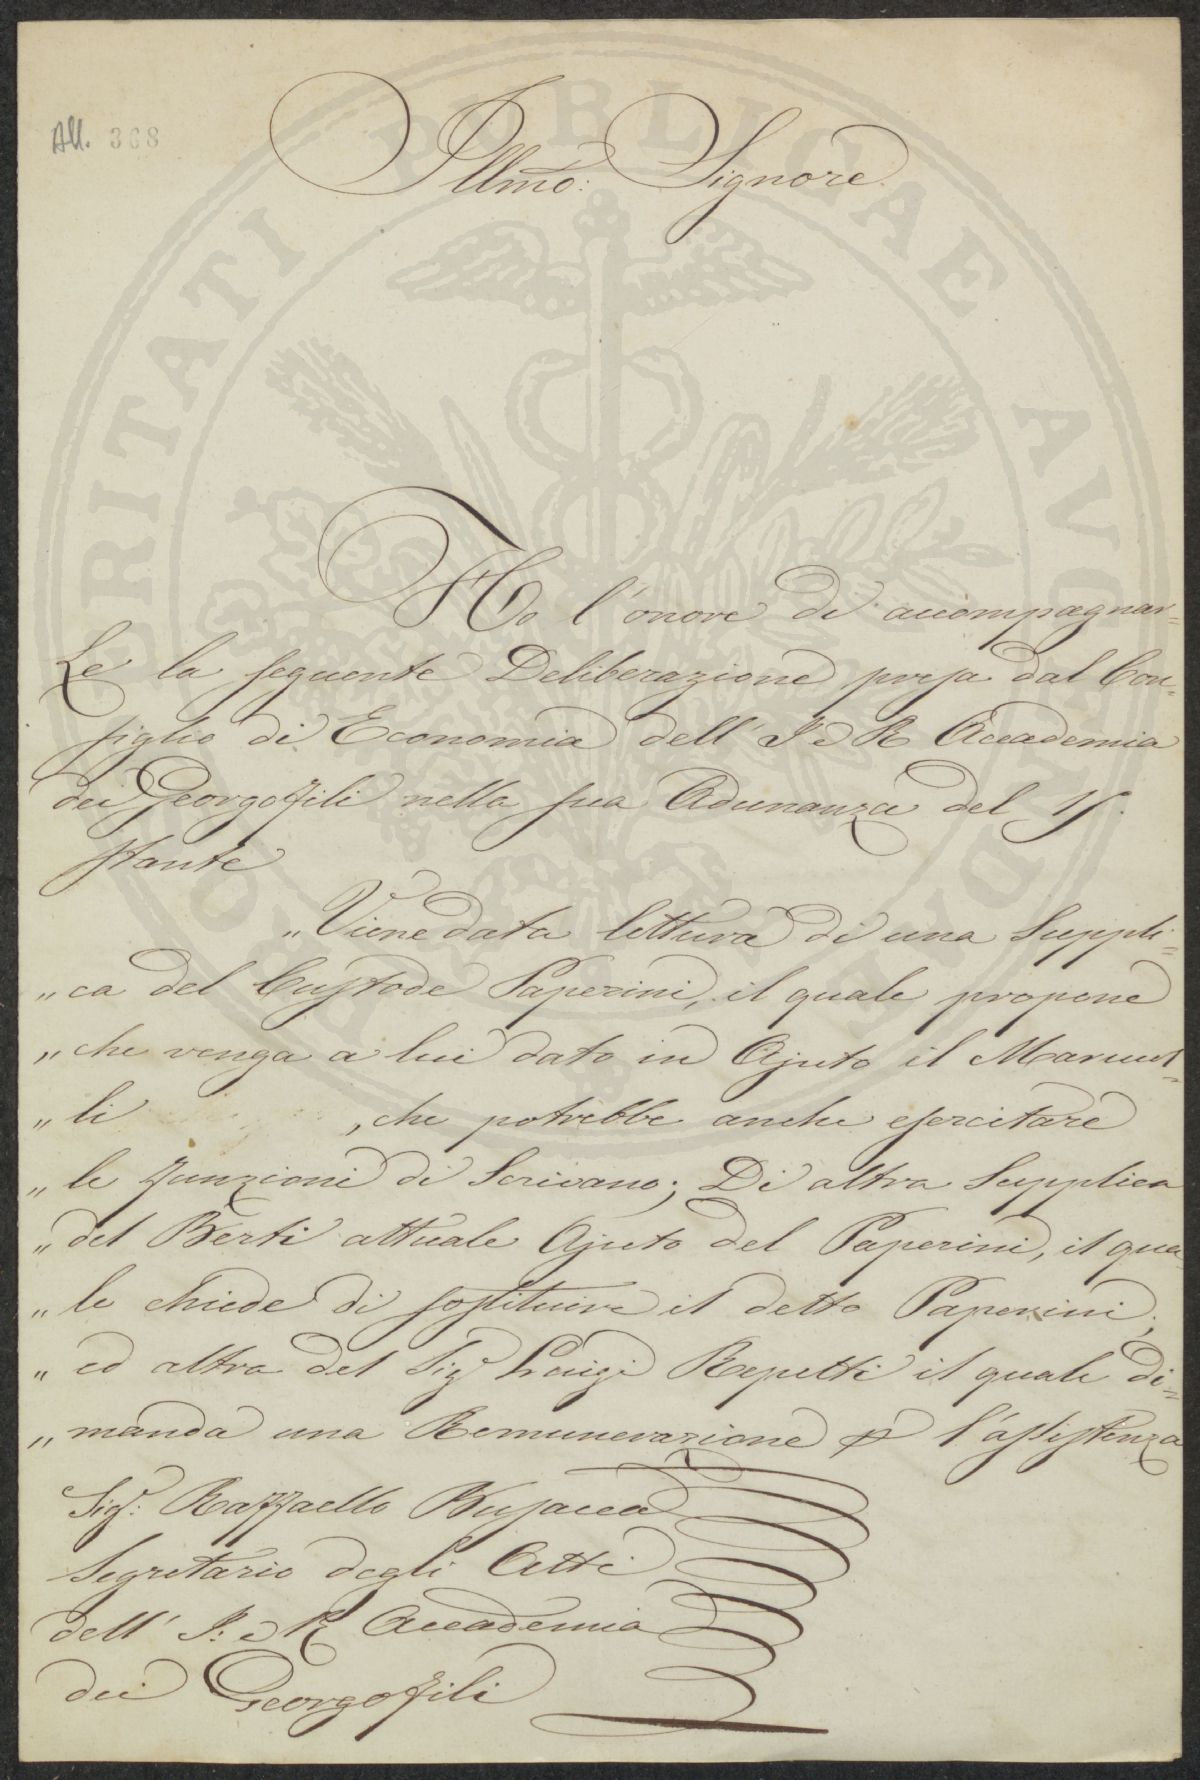 All. 368
Illmo: Signore.
Ho l'onore di accompagnar=
Le la seguente Deliberazione presa dal Con=
siglio di Economia dell'I e R Accademia
dei Georgofili nella sua Adunanza del
stante
„ Viene data lettura di una Suppli=
„ ca del Custode Paperini, il quale propone
„ che venga a lui dato in Ajuto il
„ li , che potrebbe anche esercitare
„ le funzioni di Scrivano; Di altra Supplica
„ del Berti attuale Ajuto del Paperini, il qua
„ le chiede di sostituire il detto Paperini;
„ ed altra del Sigr Luigi Repetti il quale di=
„ manda una Remunerazione p l'assistenza
Sigr: Raffaello Busacca
Segretario degli Atti
dell'I: e R Accademia
dei Georgofili
PUBLICAE AUGENDAE
PROSPERITATI